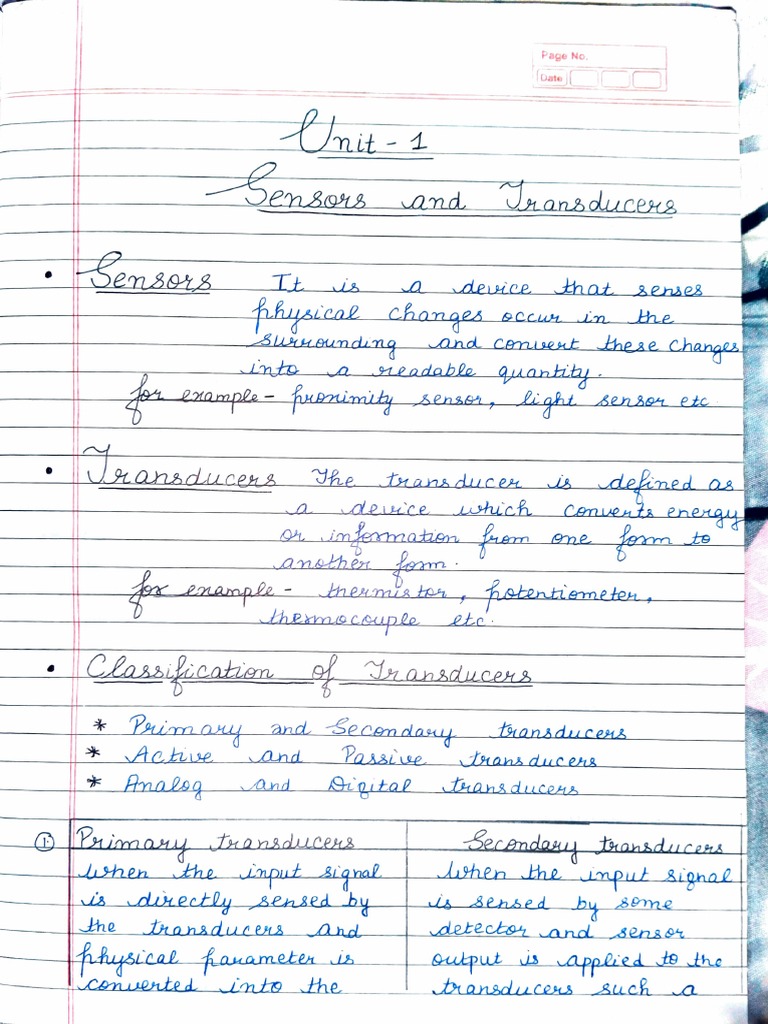 Page No.
Date
Unit - 1
Sensors and Transducers
• Sensors It is a device that senses
physical changes occur in the
surrounding and convert these changes
into a readable quantity.
for example - proximity sensor, light sensor etc
• Transducers The transducer is defined as
a device which converts energy
or information from one form to
another form.
for example - thermistor, potentiometer,
thermocouple etc.
• Classification of Transducers
* Primary and Secondary transducers
* Active and Passive transducers
* Analog and Digital transducers
① Primary transducers
when the input signal
is directly sensed by
the transducers and
physical parameter is
converted into the
Secondary transducers
when the input signal
is sensed by some
detector and sensor
output is applied to the
transducers such a